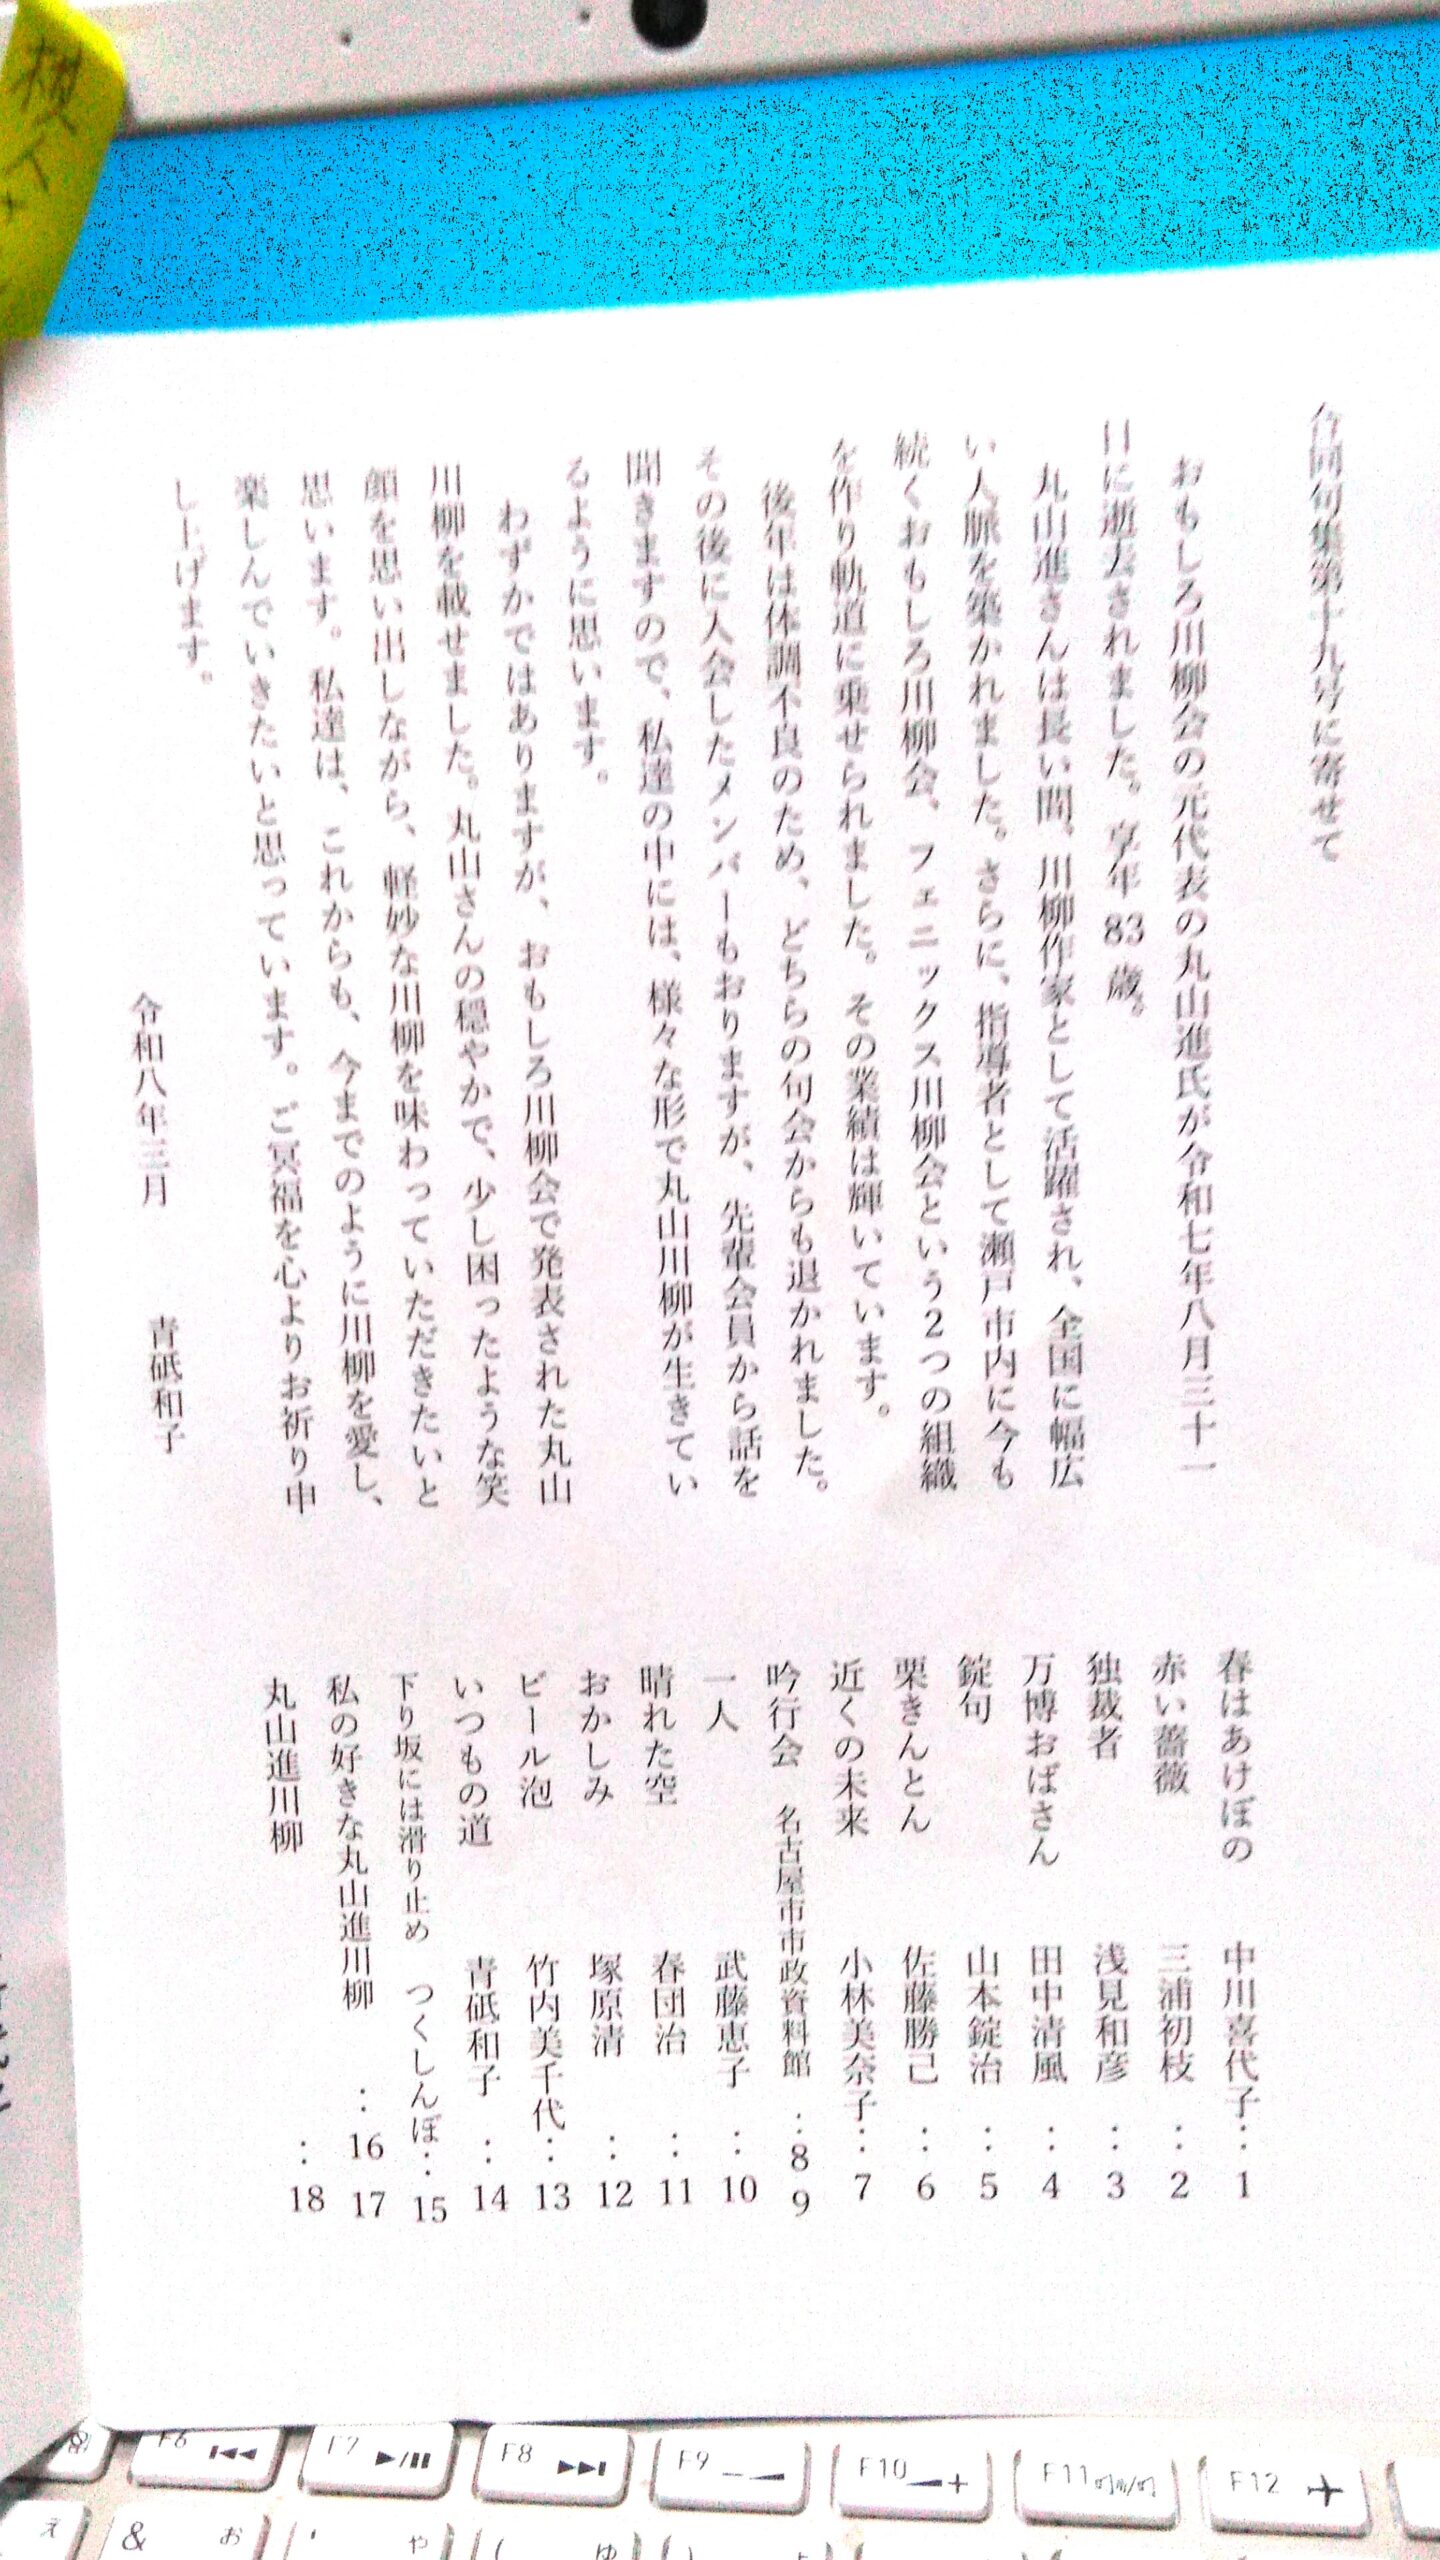 合同句集第十九号に寄せて
おもしろ川柳会の元代表の丸山進氏が令和七年八月三十一
日に逝去されました。享年83歳。
丸山進さんは長い間、川柳作家として活躍され、全国に幅広
い人脈を築かれました。さらに、指導者として瀬戸市内に今も
続くおもしろ川柳会、フェニックス川柳会という2つの組織
を作り軌道に乗せられました。その業績は輝いています。
後年は体調不良のため、どちらの句会からも退かれました。
その後に入会したメンバーもおりますが、先輩会員から話を
聞きますので、私達の中には、様々な形で丸山川柳が生きてい
るように思います。
わずかではありますが、おもしろ川柳会で発表された丸山
川柳を載せました。丸山さんの穏やかで、少し困ったような笑
顔を思い出しながら、軽妙な川柳を味わっていただきたいと
思います。私達は、これからも、今までのように川柳を愛し、
楽しんでいきたいと思っています。ご冥福を心よりお祈り申
し上げます。
令和八年三月 青砥和子
春はあけぼの 中川喜代子：1
赤い薔薇 三浦初枝：2
独裁者 浅見和彦：3
万博おばさん 田中清風：4
錠句 山本錠治：5
栗きんとん 佐藤勝己：6
近くの未来 小林美奈子：7
吟行会 名古屋市市政資料館：8 9
一人 武藤恵子：10
晴れた空 春団治：11
おかしみ 塚原清：12
ビール泡 竹内美千代：13
いつもの道 青砥和子：14
下り坂には滑り止め つくしんぼ：15
私の好きな丸山進川柳：16 17
丸山進川柳：18
F6
F7
F8
F9
F10
F11
F12
え
& お
' や
( ゆ
)